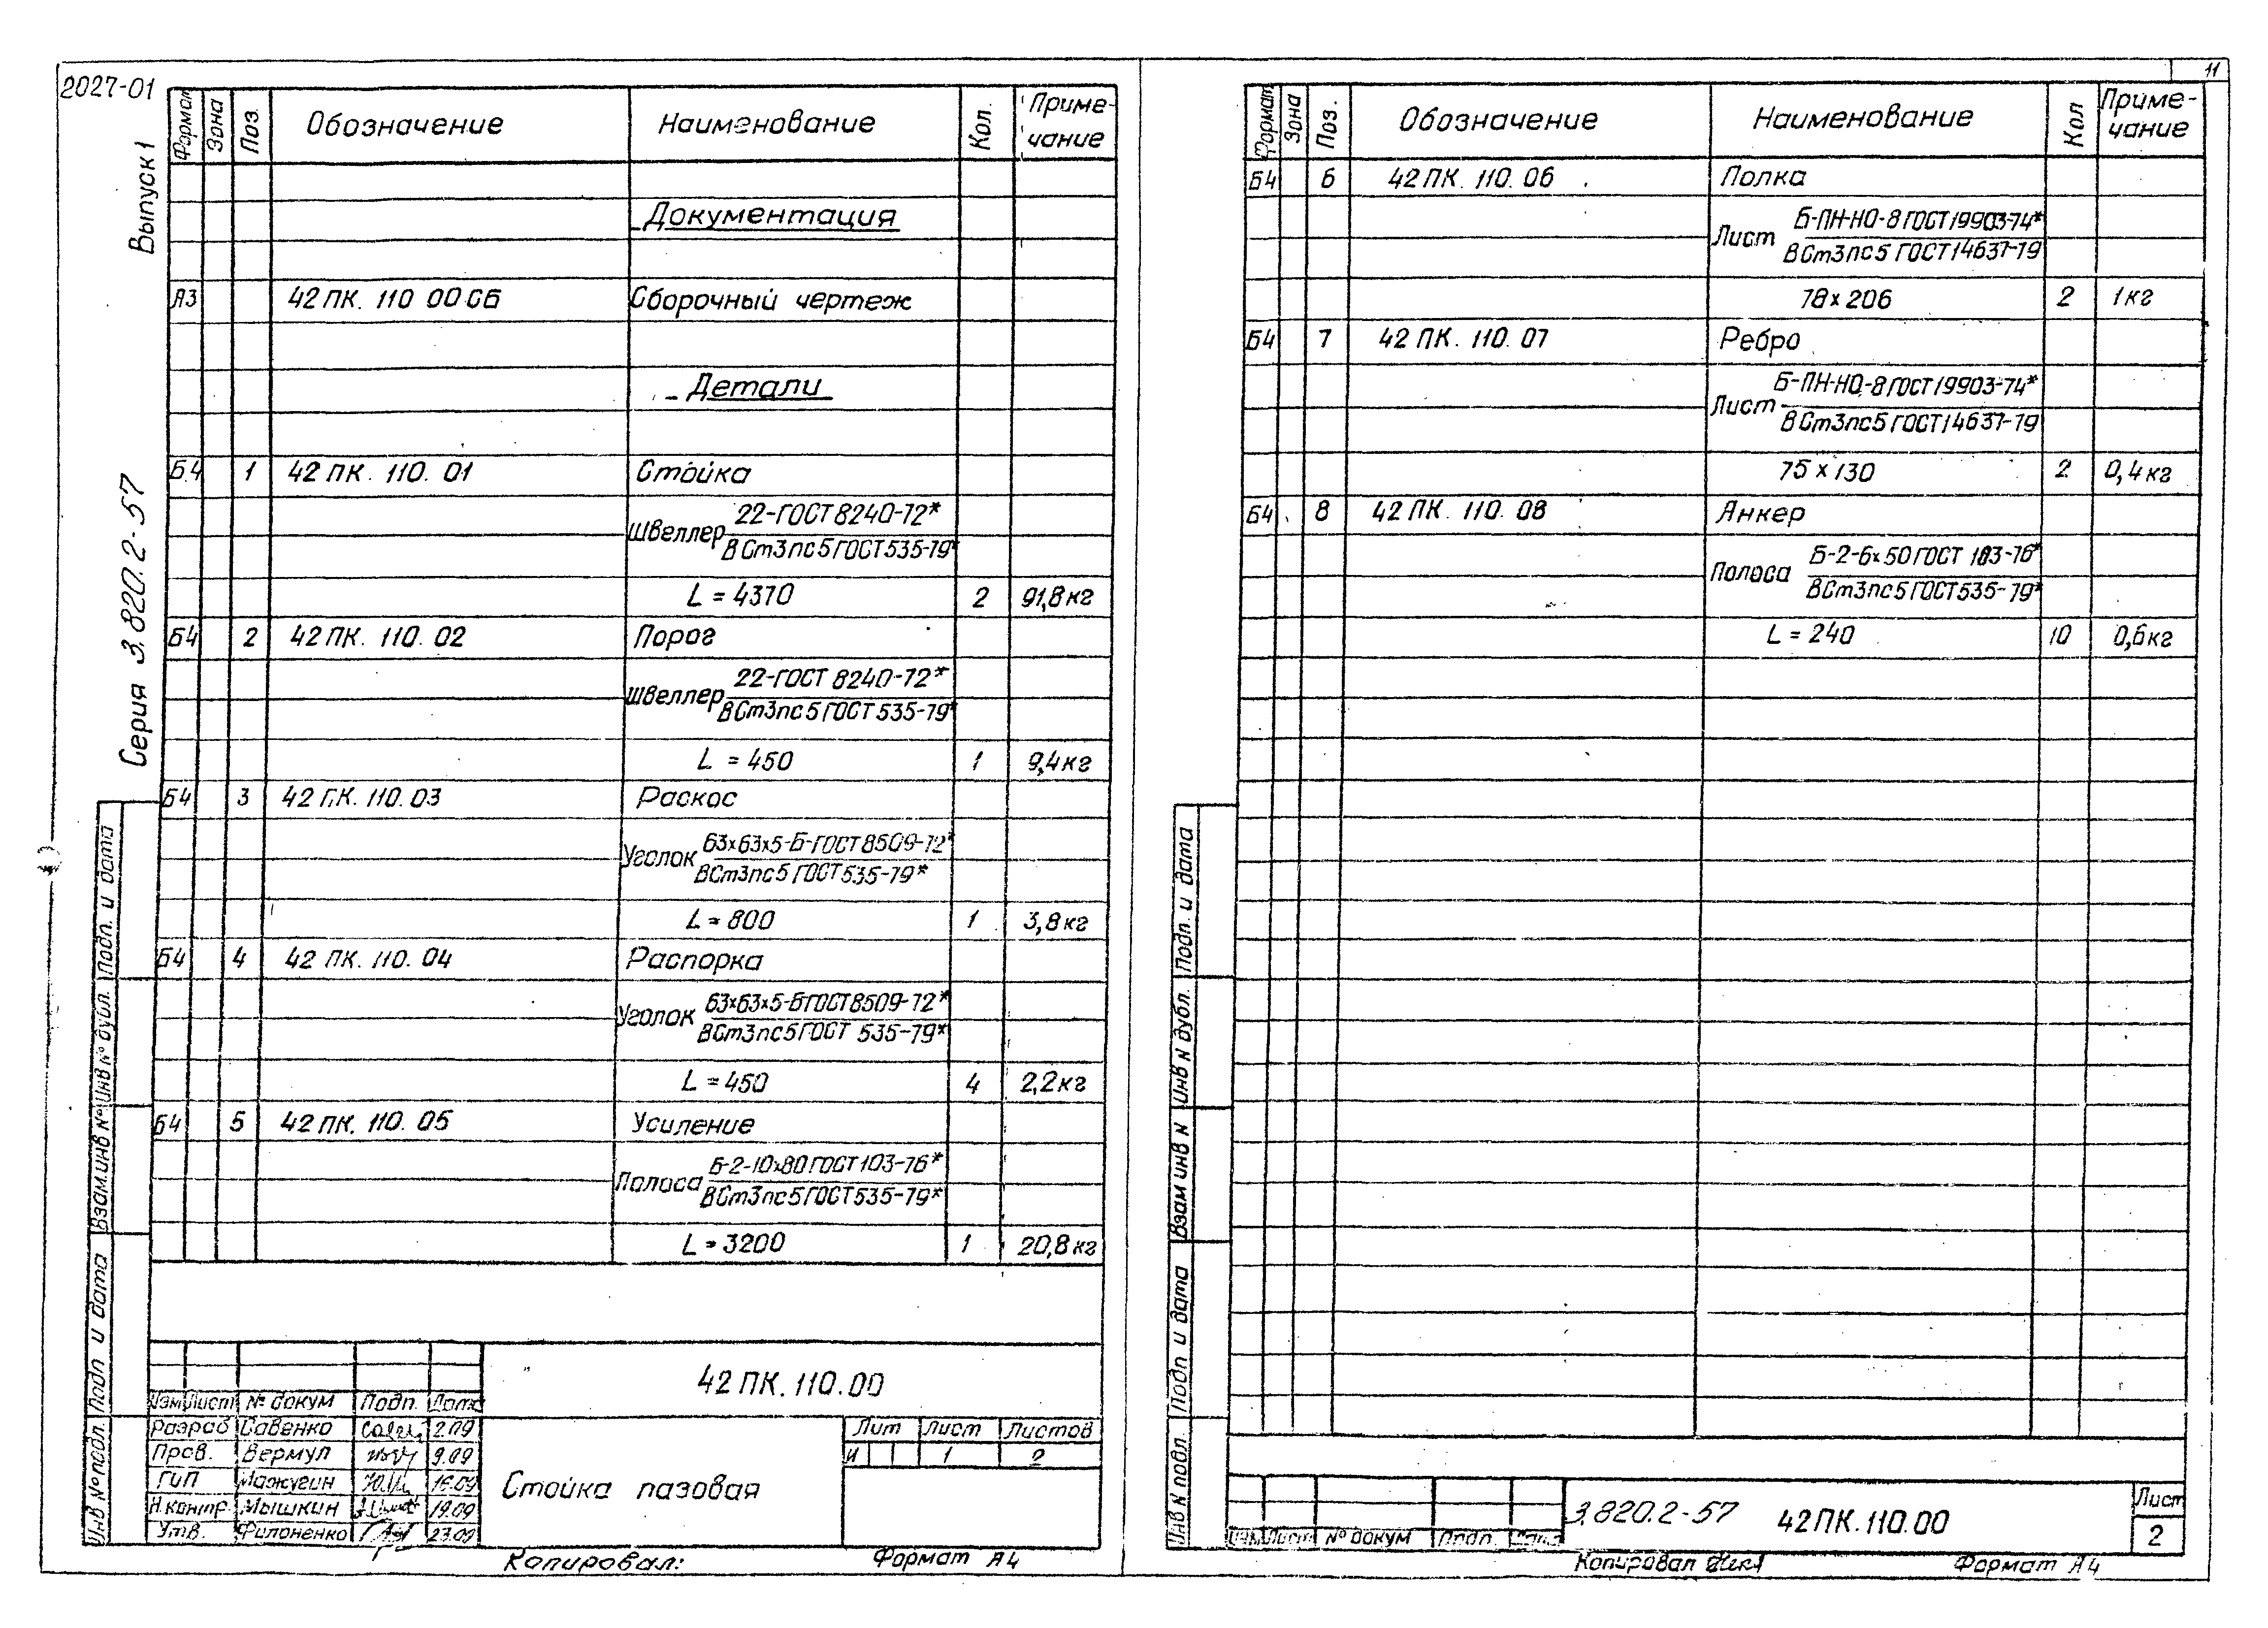 2027-01
Выпуск 1
Серия 3.820.2-57
Формат Зона Поз. Обозначение Наименование Кол. Приме-
чание
Документация
А3 42 ПК. 110 00 СБ Сборочный чертеж
Детали
Б4 1 42 ПК. 110. 01 Стойка
Швеллер 22-ГОСТ 8240-72*
ВСт3пс5 ГОСТ 535-79*
L = 4370 2 91,8 кг
Б4 2 42 ПК. 110. 02 Порог
Швеллер 22-ГОСТ 8240-72*
ВСт3пс5 ГОСТ 535-79*
L = 450 1 9,4 кг
Б4 3 42 ПК. 110. 03 Раскос
Уголок 63х63х5-Б-ГОСТ 8509-72*
ВСт3пс5 ГОСТ 535-79*
L = 800 1 3,8 кг
Б4 4 42 ПК. 110. 04 Распорка
Уголок 63х63х5-Б ГОСТ 8509-72*
ВСт3пс5 ГОСТ 535-79*
L = 450 4 2,2 кг
Б4 5 42 ПК. 110. 05 Усиление
Полоса Б-2-10х80 ГОСТ 103-76*
ВСт3пс5 ГОСТ 535-79*
L = 3200 1 20,8 кг
Инв № подл. Подп. и дата Взам. инв № Инв № дубл. Подп. и дата
42 ПК. 110.00
Изм Лист № докум Подп. Дата
Разраб Савенко 2.09
Пров. Вермул 9.09
ГИП Мажугин 16.09
Н.контр. Мышкин 19.09
Утв. Филоненко 23.09
Стойка пазовая
Лит Лист Листов
И 1 2
Копировал: Формат А4
11
Формат Зона Поз. Обозначение Наименование Кол Приме-
чание
Б4 6 42 ПК. 110. 06 Полка
Лист Б-ПН-НО-8 ГОСТ 19903-74*
ВСт3пс5 ГОСТ 14637-79
78 х 206 2 1 кг
Б4 7 42 ПК. 110. 07 Ребро
Лист Б-ПН-НО-8 ГОСТ 19903-74*
ВСт3пс5 ГОСТ 14637-79
75 х 130 2 0,4 кг
Б4 8 42 ПК. 110. 08 Анкер
Полоса Б-2-6х50 ГОСТ 103-76*
ВСт3пс5 ГОСТ 535-79*
L = 240 10 0,6 кг
Инв № подл. Подп и дата Взам инв № Инв № дубл. Подп. и дата
Изм Лист № докум Подп. Дата
3.820.2-57 42 ПК. 110.00
Лист
2
Копировал Формат А4